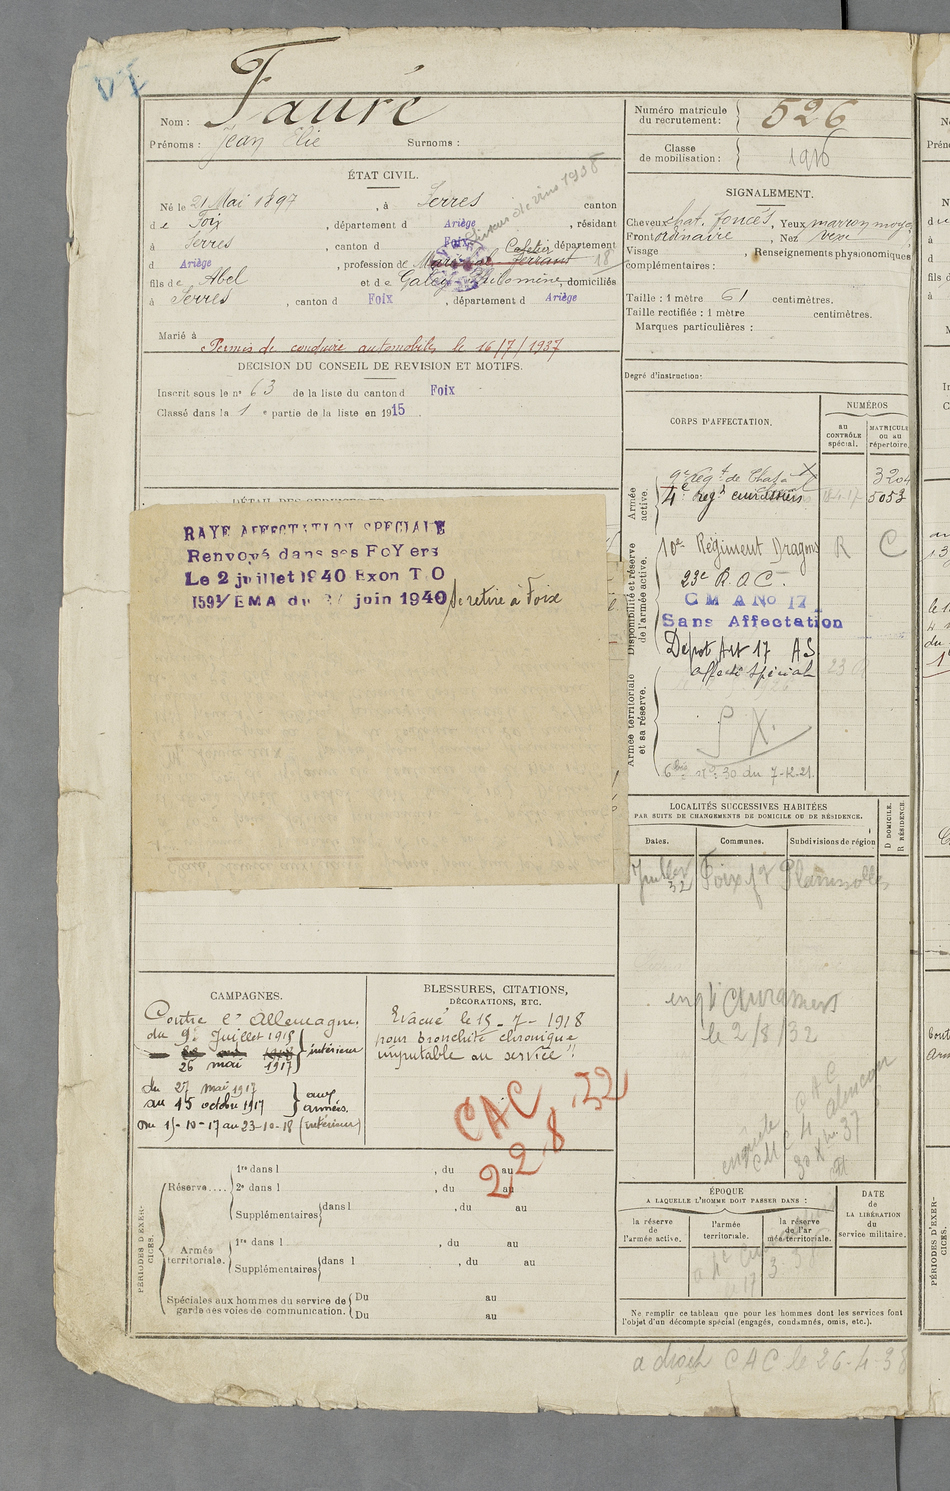 Fauré
Nom :
Prénoms : Jean Elie Surnoms :
Numéro matricule
du recrutement : 526
Classe
de mobilisation : 1916
ÉTAT CIVIL.
Né le 21 Mai 1897, à Serres canton
de Foix, département d Ariège, résidant
à Serres, canton d Foix, département
d Ariège, profession de Cafetier
fils de Abel et de Philomène, domiciliés
à Serres, canton d Foix, département d Ariège
Marié à
Permis de conduire automobiles le 16/7/1937
SIGNALEMENT.
Cheveux chat. foncés, Yeux marron moyen
Front ordinaire, Nez vexe
Visage, Renseignements physionomiques
complémentaires :
Taille : 1 mètre 61 centimètres.
Taille rectifiée : 1 mètre centimètres.
Marques particulières :
Degré d'instruction :
DÉCISION DU CONSEIL DE REVISION ET MOTIFS.
Inscrit sous le n° 63 de la liste du canton d Foix
Classé dans la 1e partie de la liste en 1915
RAYE AFFECTATION SPECIALE
Renvoyé dans ses FoYers
Le 2 juillet 1940 Exon T O
1591/EMA du juin 1940 Se retire à Foix
CORPS D'AFFECTATION.
NUMÉROS
au
CONTRÔLE
spécial.
MATRICULE
ou au
répertoire.
Armée
active.
9e Reg.t de Chas. 3204
4e regt cuirassiers 5053
Disponibilité et réserve
de l'armée active.
10e Régiment Dragons R C
23e R.A.C.
C M A No 17
Sans Affectation
Dépot Art 17 AS
affecté spécial
Armée territoriale
et sa réserve.
n° 30 du 7-12-21.
LOCALITÉS SUCCESSIVES HABITÉES
PAR SUITE DE CHANGEMENTS DE DOMICILE OU DE RÉSIDENCE.
Dates.
Communes.
Subdivisions de région
D DOMICILE.
R RÉSIDENCE.
Juillet
32
Foix
le 2/8/32
CAMPAGNES.
Contre l'Allemagne.
du 9 Juillet 1915
26 mai 1917 } intérieur
du 27 mai 1917
au 15 octobre 1917 } aux armées.
du 15-10-17 au 23-10-18 (intérieur)
BLESSURES, CITATIONS,
DÉCORATIONS, ETC.
Evacué le 15-7-1918
pour bronchite chronique
imputable au service !!
CAC
22.8.32
PÉRIODES D'EXERCICES.
Réserve....
1re dans l , du au
2e dans l , du au
Supplémentaires dans l , du au
Armée
territoriale.
1re dans l , du au
Supplémentaires dans l , du au
Spéciales aux hommes du service de
garde des voies de communication.
Du au
Du au
ÉPOQUE
A LAQUELLE L'HOMME DOIT PASSER DANS :
la réserve
de
l'armée active.
l'armée
territoriale.
la réserve
de l'ar
mée territoriale.
DATE
de
LA LIBÉRATION
du
service militaire.
Ne remplir ce tableau que pour les hommes dont les services font
l'objet d'un décompte spécial (engagés, condamnés, omis, etc.).
CAC le 26-4-38